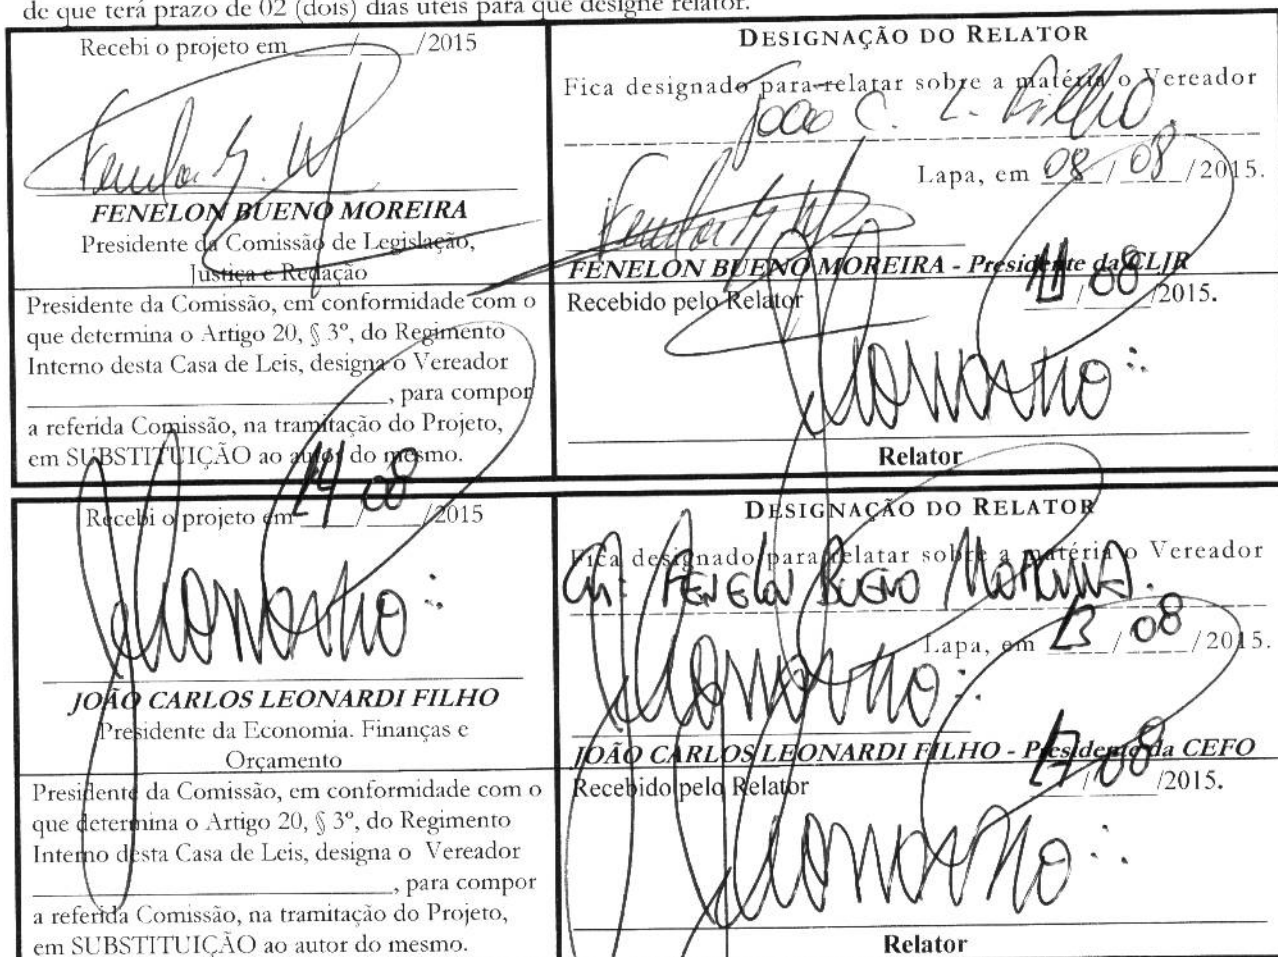 de que terá prazo de 02 (dois) dias úteis para que designe relator.
Recebi o projeto em ____/____/2015
FENELON BUENO MOREIRA
Presidente da Comissão de Legislação,
Justiça e Redação
Presidente da Comissão, em conformidade com o
que determina o Artigo 20, § 3º, do Regimento
Interno desta Casa de Leis, designa o Vereador
____________________, para compor
a referida Comissão, na tramitação do Projeto,
em SUBSTITUIÇÃO ao autor do mesmo.
DESIGNAÇÃO DO RELATOR
Fica designado para relatar sobre a matéria o Vereador
João C. L. Filho
Lapa, em 08/08/2015.
FENELON BUENO MOREIRA - Presidente da CLJR
Recebido pelo Relator 11/08/2015.
Relator
Recebi o projeto em 11/08/2015
JOÃO CARLOS LEONARDI FILHO
Presidente da Economia. Finanças e
Orçamento
Presidente da Comissão, em conformidade com o
que determina o Artigo 20, § 3º, do Regimento
Interno desta Casa de Leis, designa o Vereador
____________________, para compor
a referida Comissão, na tramitação do Projeto,
em SUBSTITUIÇÃO ao autor do mesmo.
DESIGNAÇÃO DO RELATOR
Fica designado para relatar sobre a matéria o Vereador
FENELON BUENO MOREIRA.
Lapa, em 13/08/2015.
JOÃO CARLOS LEONARDI FILHO - Presidente da CEFO
Recebido pelo Relator 17/08/2015.
Relator